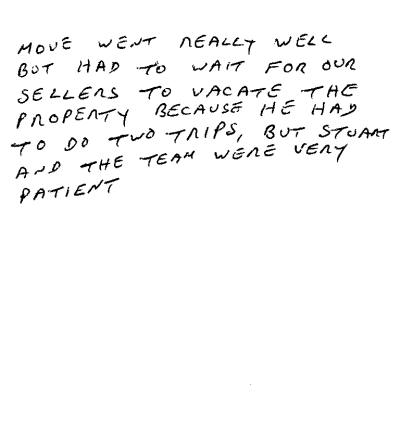 MOVE WENT REALLY WELL
BUT HAD TO WAIT FOR OUR
SELLERS TO VACATE THE
PROPERTY BECAUSE HE HAD
TO DO TWO TRIPS, BUT STUART
AND THE TEAM WERE VERY
PATIENT